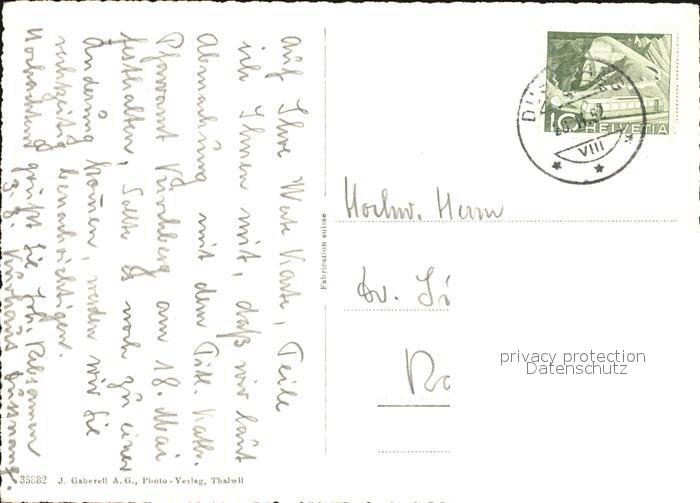 auf Ihre Werte Karte, Teile
ich Ihnen mit, daß wir laut
Abmachung mit dem Titl. Kath.
Pfarramt Kirchberg am 18. Mai
festhalten, Sollte es noch zu einer
Änderung kommen, werden wir Sie
rechtzeitig benachrichtigen.
Hochachtend grüßt Sie Joh.
z. B.
Fabrication suisse
HELVETIA
10
VIII
Hochw. Herrn
Dr.
privacy protection
Datenschutz
35882 J. Gaberell A. G., Photo-Verlag, Thalwil